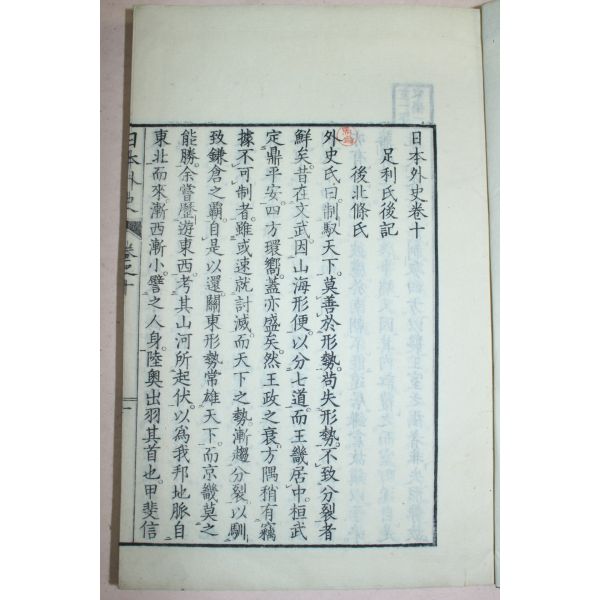 日本外史卷十
足利氏後記
後北條氏
外史氏曰。制馭天下。莫善於形勢。苟失形勢。不致分裂者
鮮矣。昔在文武。因山海形便。以分七道。而王畿居中。桓武
定鼎平安。四方環嚮。蓋亦盛矣。然王政之衰。方隅稍有竊
據不可制者。雖或速就討滅。而天下之勢。漸趨分裂。以馴
致鎌倉之霸。自是以還。關東形勢常雄天下。而京畿莫之
能勝。余嘗歷遊東西。考其山河所起伏。以為我邦地脈。自
東北而來。漸西漸小。譬之人身。陸奧出羽其首也。甲斐信
日本外史 卷之十 一